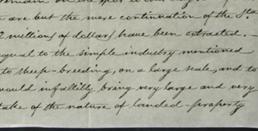 are but the mere continuation of the
millions of dollars have been extracted.
to the simple industry mentioned
to sheep-breeding on a large scale, and to
would infallibly bring very large and very
take of the nature of landed-property